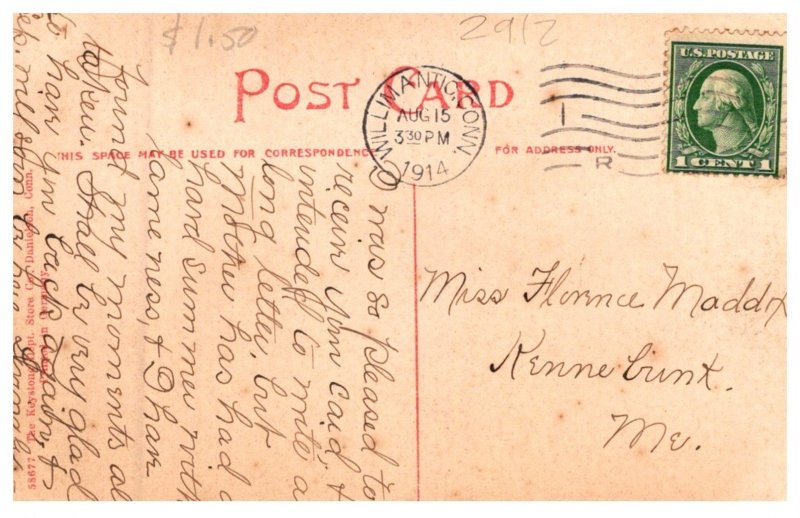 $1.50
2912
POST CARD
WILLIMANTIC, CONN.
AUG 15
3 30 PM
1914
1
R
U.S. POSTAGE
1 CENT 1
THIS SPACE MAY BE USED FOR CORRESPONDENCE
FOR ADDRESS ONLY.
Miss Florence Maddox
Kennebunk.
Me.
I was so pleased to
receive your card, &
intended to write a
long letter, but
Mother has had a
hard summer with
lameness, & I have
found my moments al
taken. Shall be very glad
to have you back again, &
58677 The Keystone Dept. Store Co., Danielson, Conn.
Germany